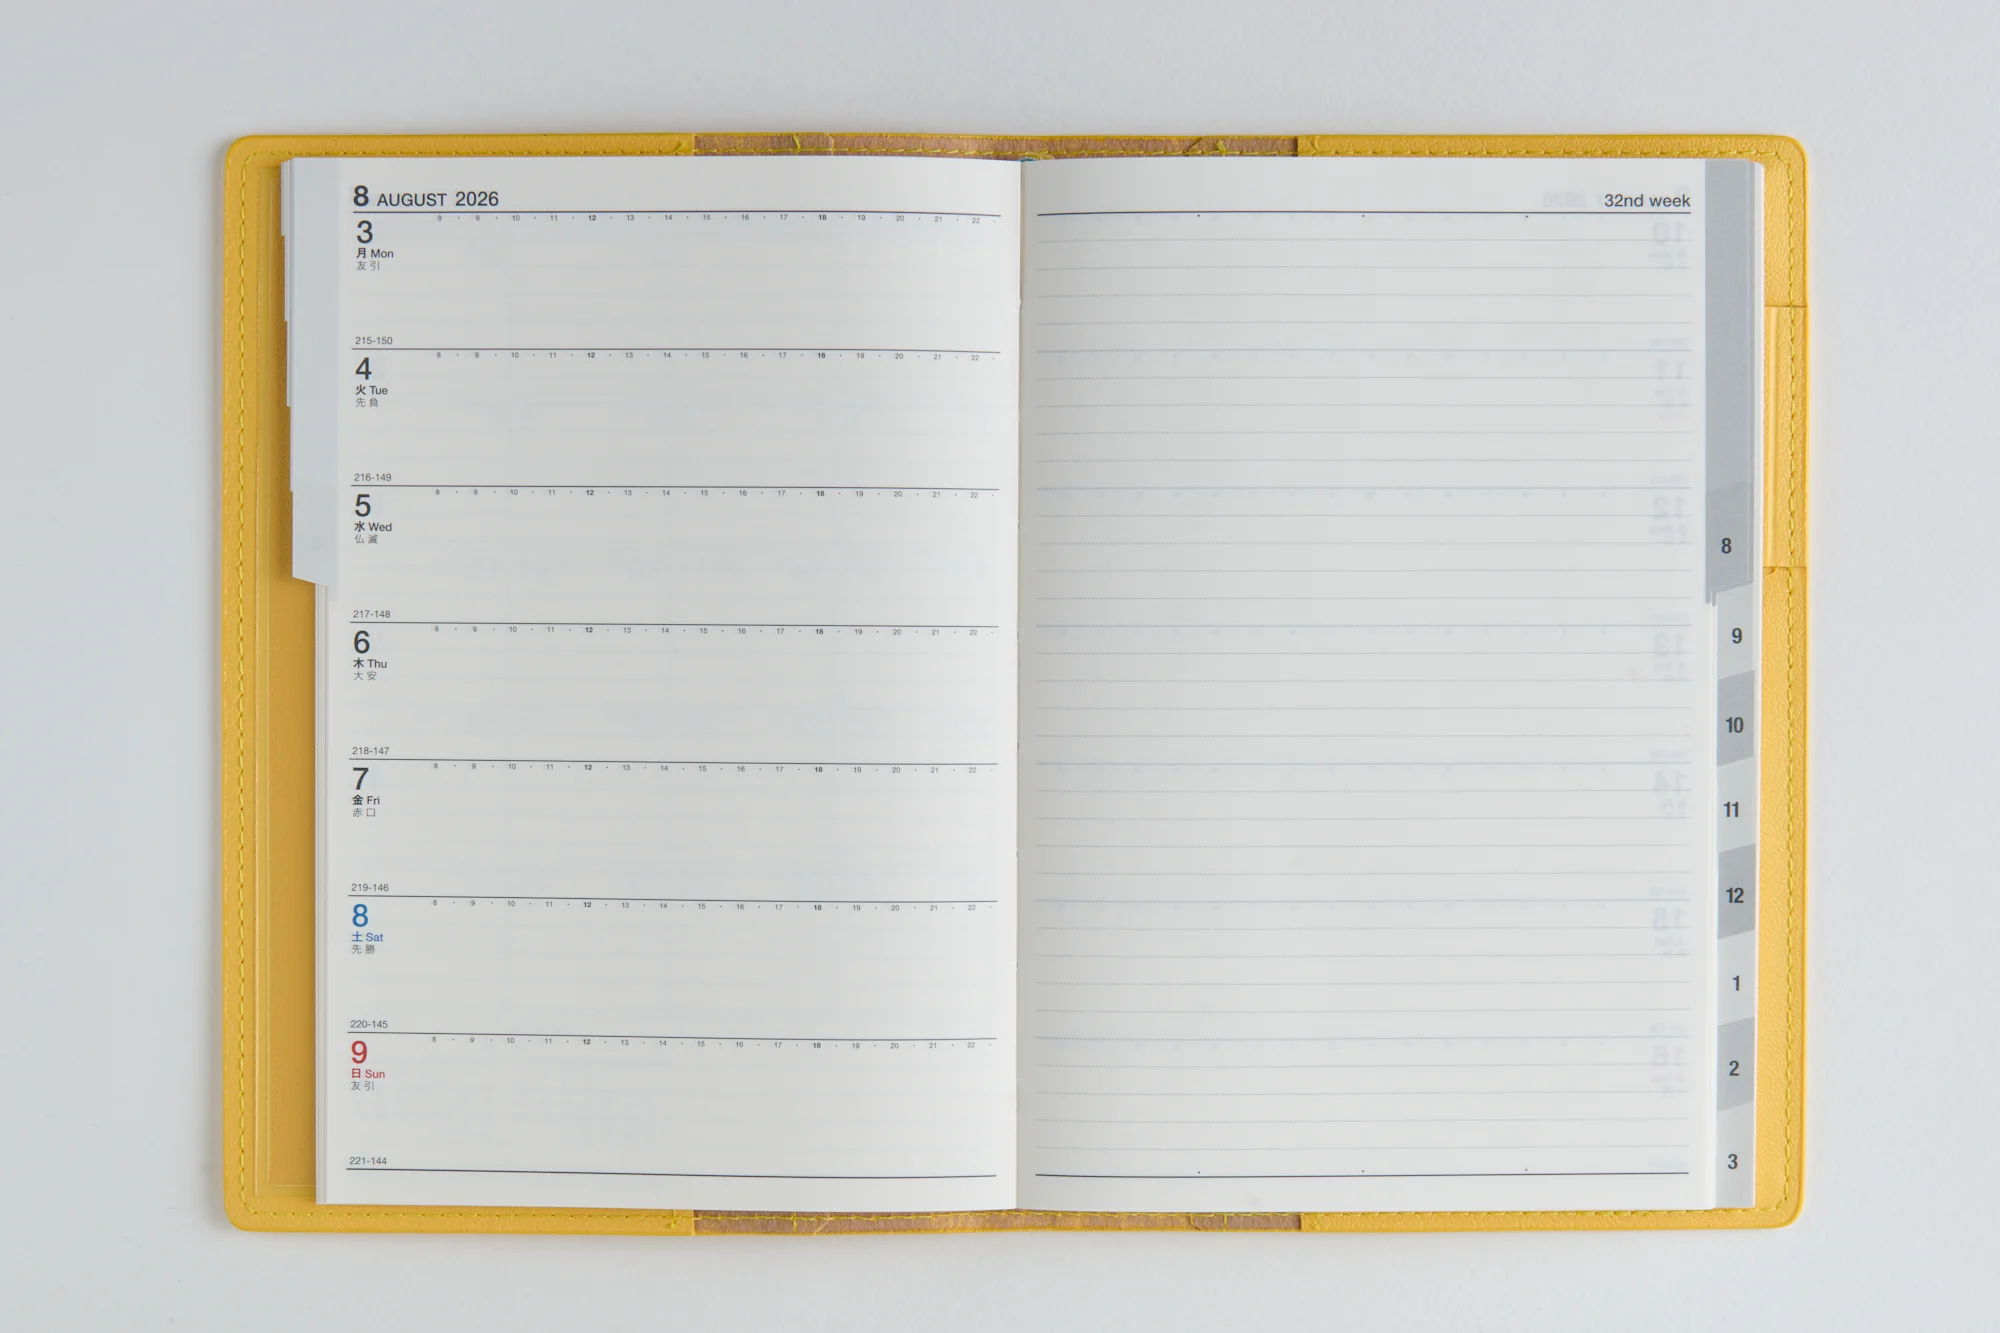 8 AUGUST 2026
8 · 9 · 10 · 11 · 12 · 13 · 14 · 15 · 16 · 17 · 18 · 19 · 20 · 21 · 22 ·
3
月 Mon
友引
215-150
8 · 9 · 10 · 11 · 12 · 13 · 14 · 15 · 16 · 17 · 18 · 19 · 20 · 21 · 22 ·
4
火 Tue
先負
216-149
8 · 9 · 10 · 11 · 12 · 13 · 14 · 15 · 16 · 17 · 18 · 19 · 20 · 21 · 22 ·
5
水 Wed
仏滅
217-148
8 · 9 · 10 · 11 · 12 · 13 · 14 · 15 · 16 · 17 · 18 · 19 · 20 · 21 · 22 ·
6
木 Thu
大安
218-147
8 · 9 · 10 · 11 · 12 · 13 · 14 · 15 · 16 · 17 · 18 · 19 · 20 · 21 · 22 ·
7
金 Fri
赤口
219-146
8 · 9 · 10 · 11 · 12 · 13 · 14 · 15 · 16 · 17 · 18 · 19 · 20 · 21 · 22 ·
8
土 Sat
先勝
220-145
8 · 9 · 10 · 11 · 12 · 13 · 14 · 15 · 16 · 17 · 18 · 19 · 20 · 21 · 22 ·
9
日 Sun
友引
221-144
32nd week
8
9
10
11
12
1
2
3